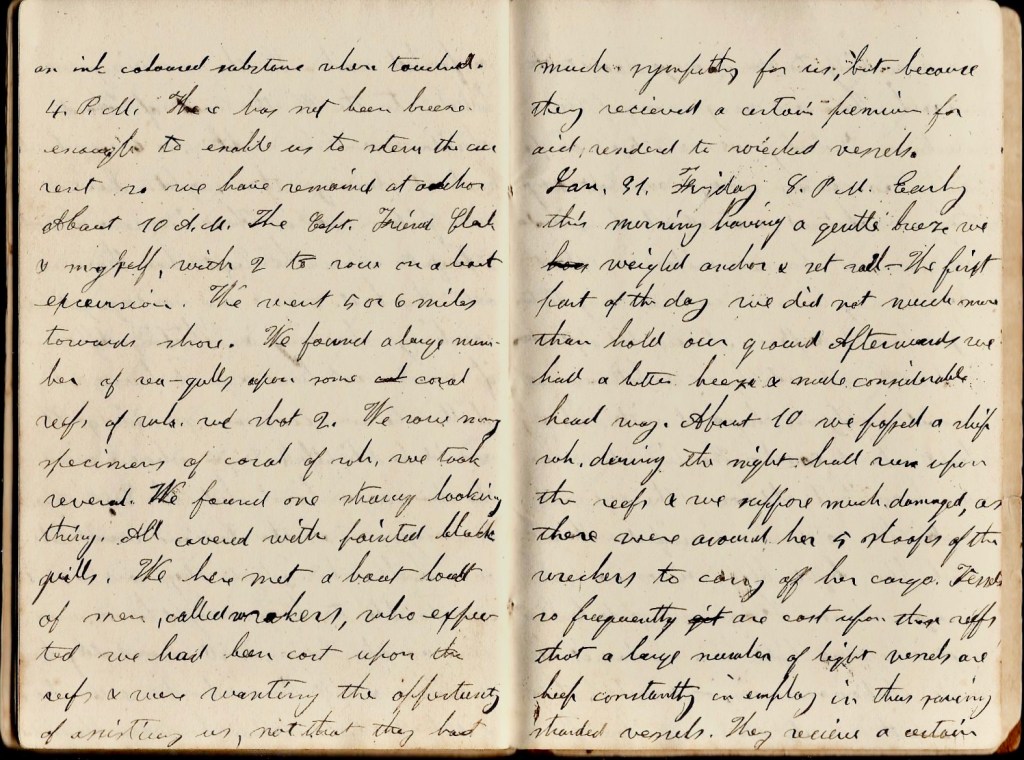 an ink coloured substance when touched.
4. P.M. There has not been breeze
enough to enable us to stem the cur
rent so we have remained at anchor
About 10 A.M. The Capt. Friend Clark
& myself, with 2 to row on a boat
excursion. We went 5 or 6 miles
towards shore. We found a large num-
ber of sea-gulls upon some coral
reefs of wh. we shot 2. We saw many
specimens of coral of wh. we took
several. We found one strang looking
thing. All covered with pointed black
quills. We here met a boat load
of men, called wrakers, who expec
ted we had been cast upon the
reefs & were wanting the opportunity
of assisting us, not that they had
much sympathy for us, but because
they recieved a certain premium for
aid, rendered to wrecked vessels.
Jan. 31. Friday 8. P.M. Early
this morning having a gentle breeze we
weighed anchor & set sail - The first
part of the day we did not much more
than hold our ground Afterwards we
had a better breeze & made considerable
head way. About 10 we passed a ship
wh. during the night had run upon
the reefs & we suppose much damaged, as
there were around her 5 sloops of the
wreckers to carry off her cargo. Vessels
so frequently are cast upon these reefs
that a large number of light vessels are
keep constantly in employ in thus saving
stranded vessels. They recieve a certain